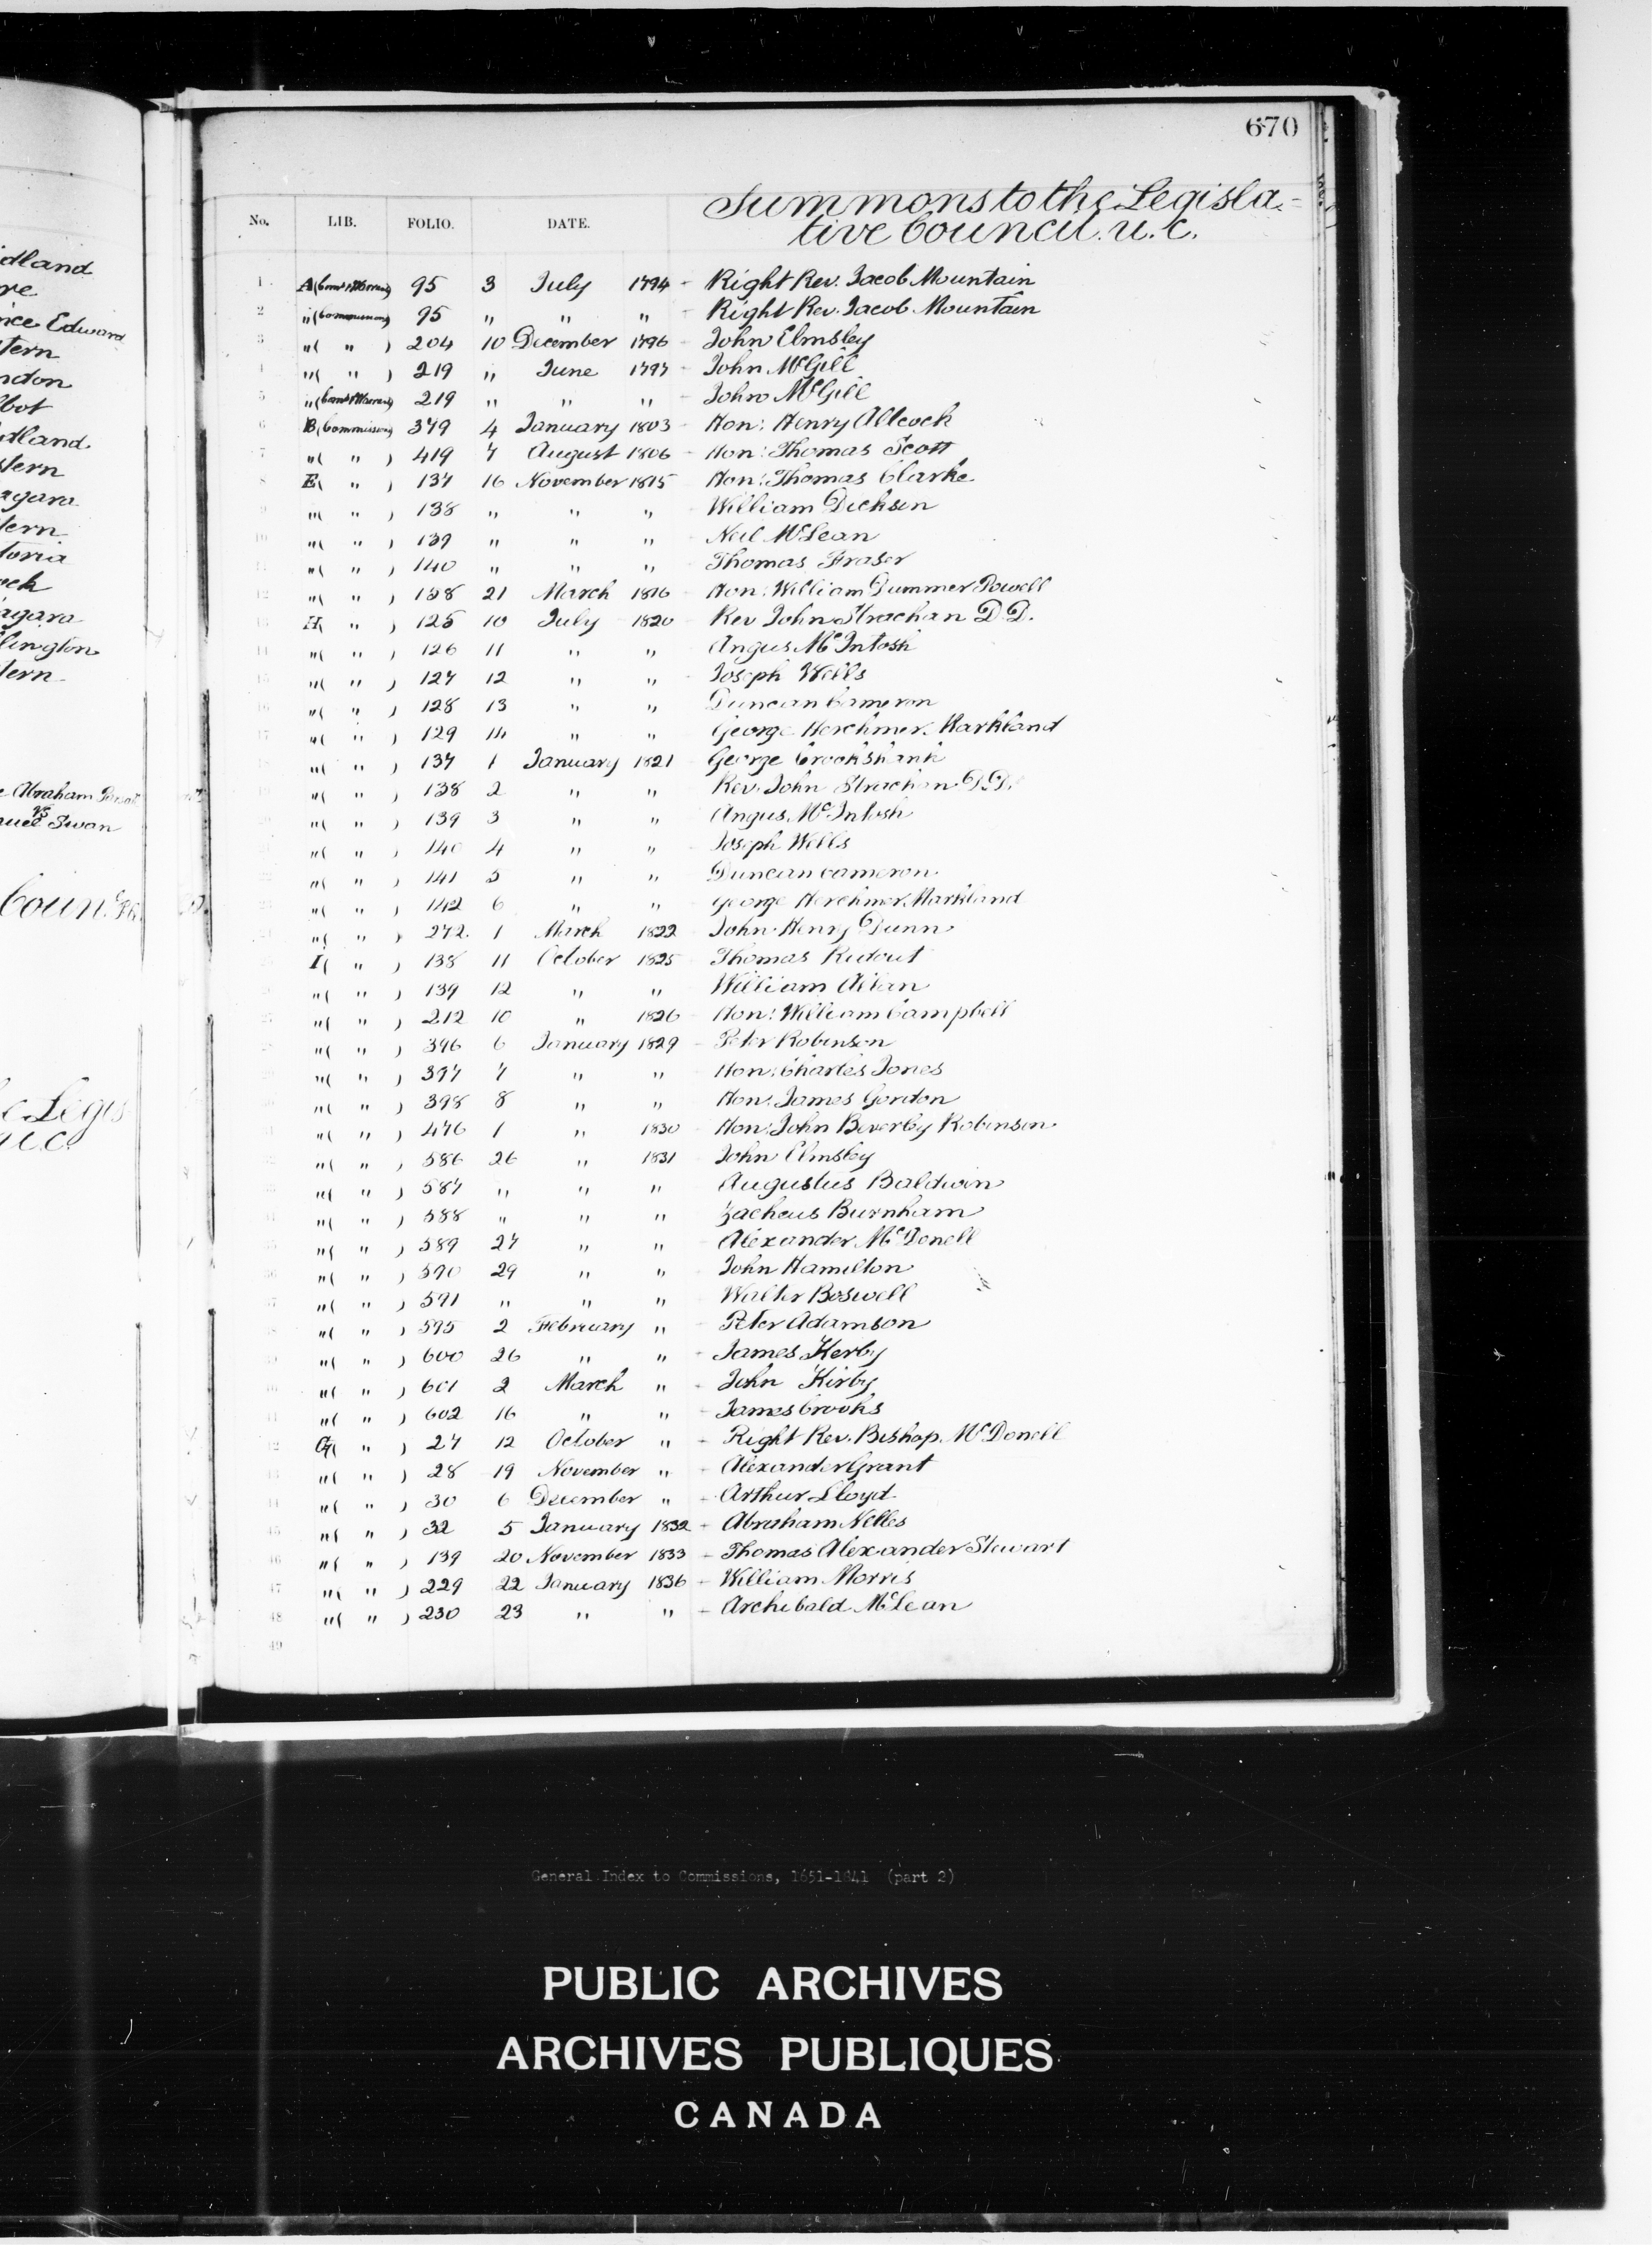 670
Summons to the Legisla-
tive Council. U.C.
No. LIB. FOLIO. DATE.
1 A (Com & Warrants) 95 3 July 1794 - Right Rev. Jacob Mountain
2 " (Commissions) 95 " " " - Right Rev. Jacob Mountain
3 " ( " ) 204 10 December 1796 - John Elmsley
4 " ( " ) 219 " June 1797 - John McGill
5 " (Com & Warrants) 219 " " " - John McGill
6 B (Commissions) 379 4 January 1803 - Hon: Henry Allcock
7 " ( " ) 419 7 August 1806 - Hon: Thomas Scott
8 E ( " ) 137 16 November 1815 Hon: Thomas Clarke
9 " ( " ) 138 " " " William Dickson
10 " ( " ) 139 " " " Neil McLean
11 " ( " ) 140 " " " Thomas Fraser
12 " ( " ) 158 21 March 1816 Hon: William Dummer Powell
13 H ( " ) 125 10 July 1820 - Rev John Strachan D.D.
14 " ( " ) 126 11 " " - Angus McIntosh
15 " ( " ) 127 12 " " - Joseph Wells
16 " ( " ) 128 13 " " - Duncan Cameron
17 " ( " ) 129 14 " " - George Herchmer Markland
" ( " ) 137 1 January 1821 - George Crookshank
" ( " ) 138 2 " " - Rev. John Strachan D.D.
" ( " ) 139 3 " " - Angus McIntosh
" ( " ) 140 4 " " - Joseph Wells
" ( " ) 141 5 " " - Duncan Cameron
" ( " ) 142 6 " " - George Herchmer Markland
" ( " ) 272 1 March 1822 - John Henry Dunn
I ( " ) 138 11 October 1825 - Thomas Ridout
" ( " ) 139 12 " " William Allan
" ( " ) 212 10 " 1826 - Hon: William Campbell
" ( " ) 396 6 January 1829 - Peter Robinson
" ( " ) 397 7 " " - Hon: Charles Jones
" ( " ) 398 8 " " - Hon: James Gordon
" ( " ) 476 1 " 1830 - Hon: John Beverley Robinson
32 " ( " ) 586 26 " 1831 - John Elmsley
" ( " ) 587 " " " Augustus Baldwin
" ( " ) 588 " " " Zacheus Burnham
" ( " ) 589 27 " " - Alexander McDonell
36 " ( " ) 590 29 " " - John Hamilton
37 " ( " ) 591 " " " - Walter Boswell
" ( " ) 595 2 February " - Peter Adamson
" ( " ) 600 26 " " - James Kerby
40 " ( " ) 601 2 March " - John Kirby
41 " ( " ) 602 16 " " - James Crooks
42 G ( " ) 27 12 October " - Right Rev. Bishop McDonell
43 " ( " ) 28 19 November " - Alexander Grant
44 " ( " ) 30 6 December " - Arthur Lloyd
45 " ( " ) 32 5 January 1832 - Abraham Nelles
46 " ( " ) 139 20 November 1833 - Thomas Alexander Stewart
47 " ( " ) 229 22 January 1836 - William Morris
48 " ( " ) 230 23 " " - Archibald McLean
49
Edward
Abraham
Swan
General Index to Commissions, 1651-1841 (part 2)
PUBLIC ARCHIVES
ARCHIVES PUBLIQUES
CANADA